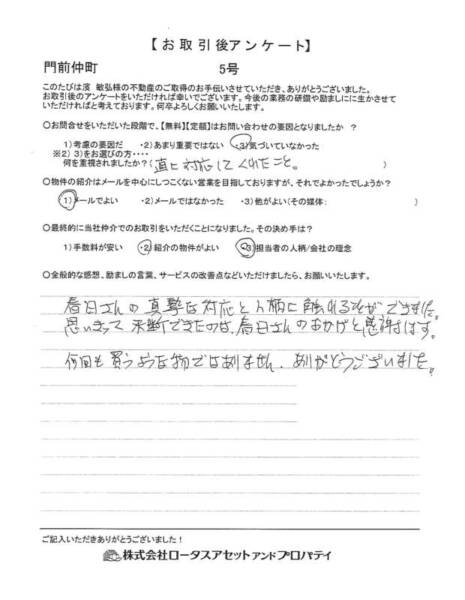 【お取引後アンケート】
門前仲町 5号
このたびは濱 敏弘様の不動産のご取得のお手伝いさせていただき、ありがとうございました。
お取引後のアンケートをいただければ幸いでございます。今後の業務の研鑽や励ましに生かさせて
いただければと考えております。何卒よろしくお願いいたします。
○お問合せをいただいた段階で、【無料】【定額】はお問い合わせの要因となりましたか ?
1)考慮の要因だ ・2)あまり重要ではない ・3)気づいていなかった
※2)3)をお選びの方・・・・
何を重視されましたか?( 直に対応してくれたこと。 )
○物件の紹介はメールを中心にしつこくない営業を目指しておりますが、それでよかったでしょうか?
1)メールでよい ・2)メールではなかった ・3)他がよい(その媒体: )
○最終的に当社仲介でのお取引をいただくことになりました。その決め手は?
1)手数料が安い ・2)紹介の物件がよい ・3)担当者の人柄/会社の理念
○全般的な感想、励ましの言葉、サービスの改善点などいただけましたら、お願いいたします。
春日さんの真摯な対応と人柄に触れることができました。
思いきって決断できたのは、春日さんのおかげと感謝します。
何回も買うような物ではありません。ありがとうございました。
ご記入いただきありがとうございました!
株式会社ロータスアセットアンドプロパティ